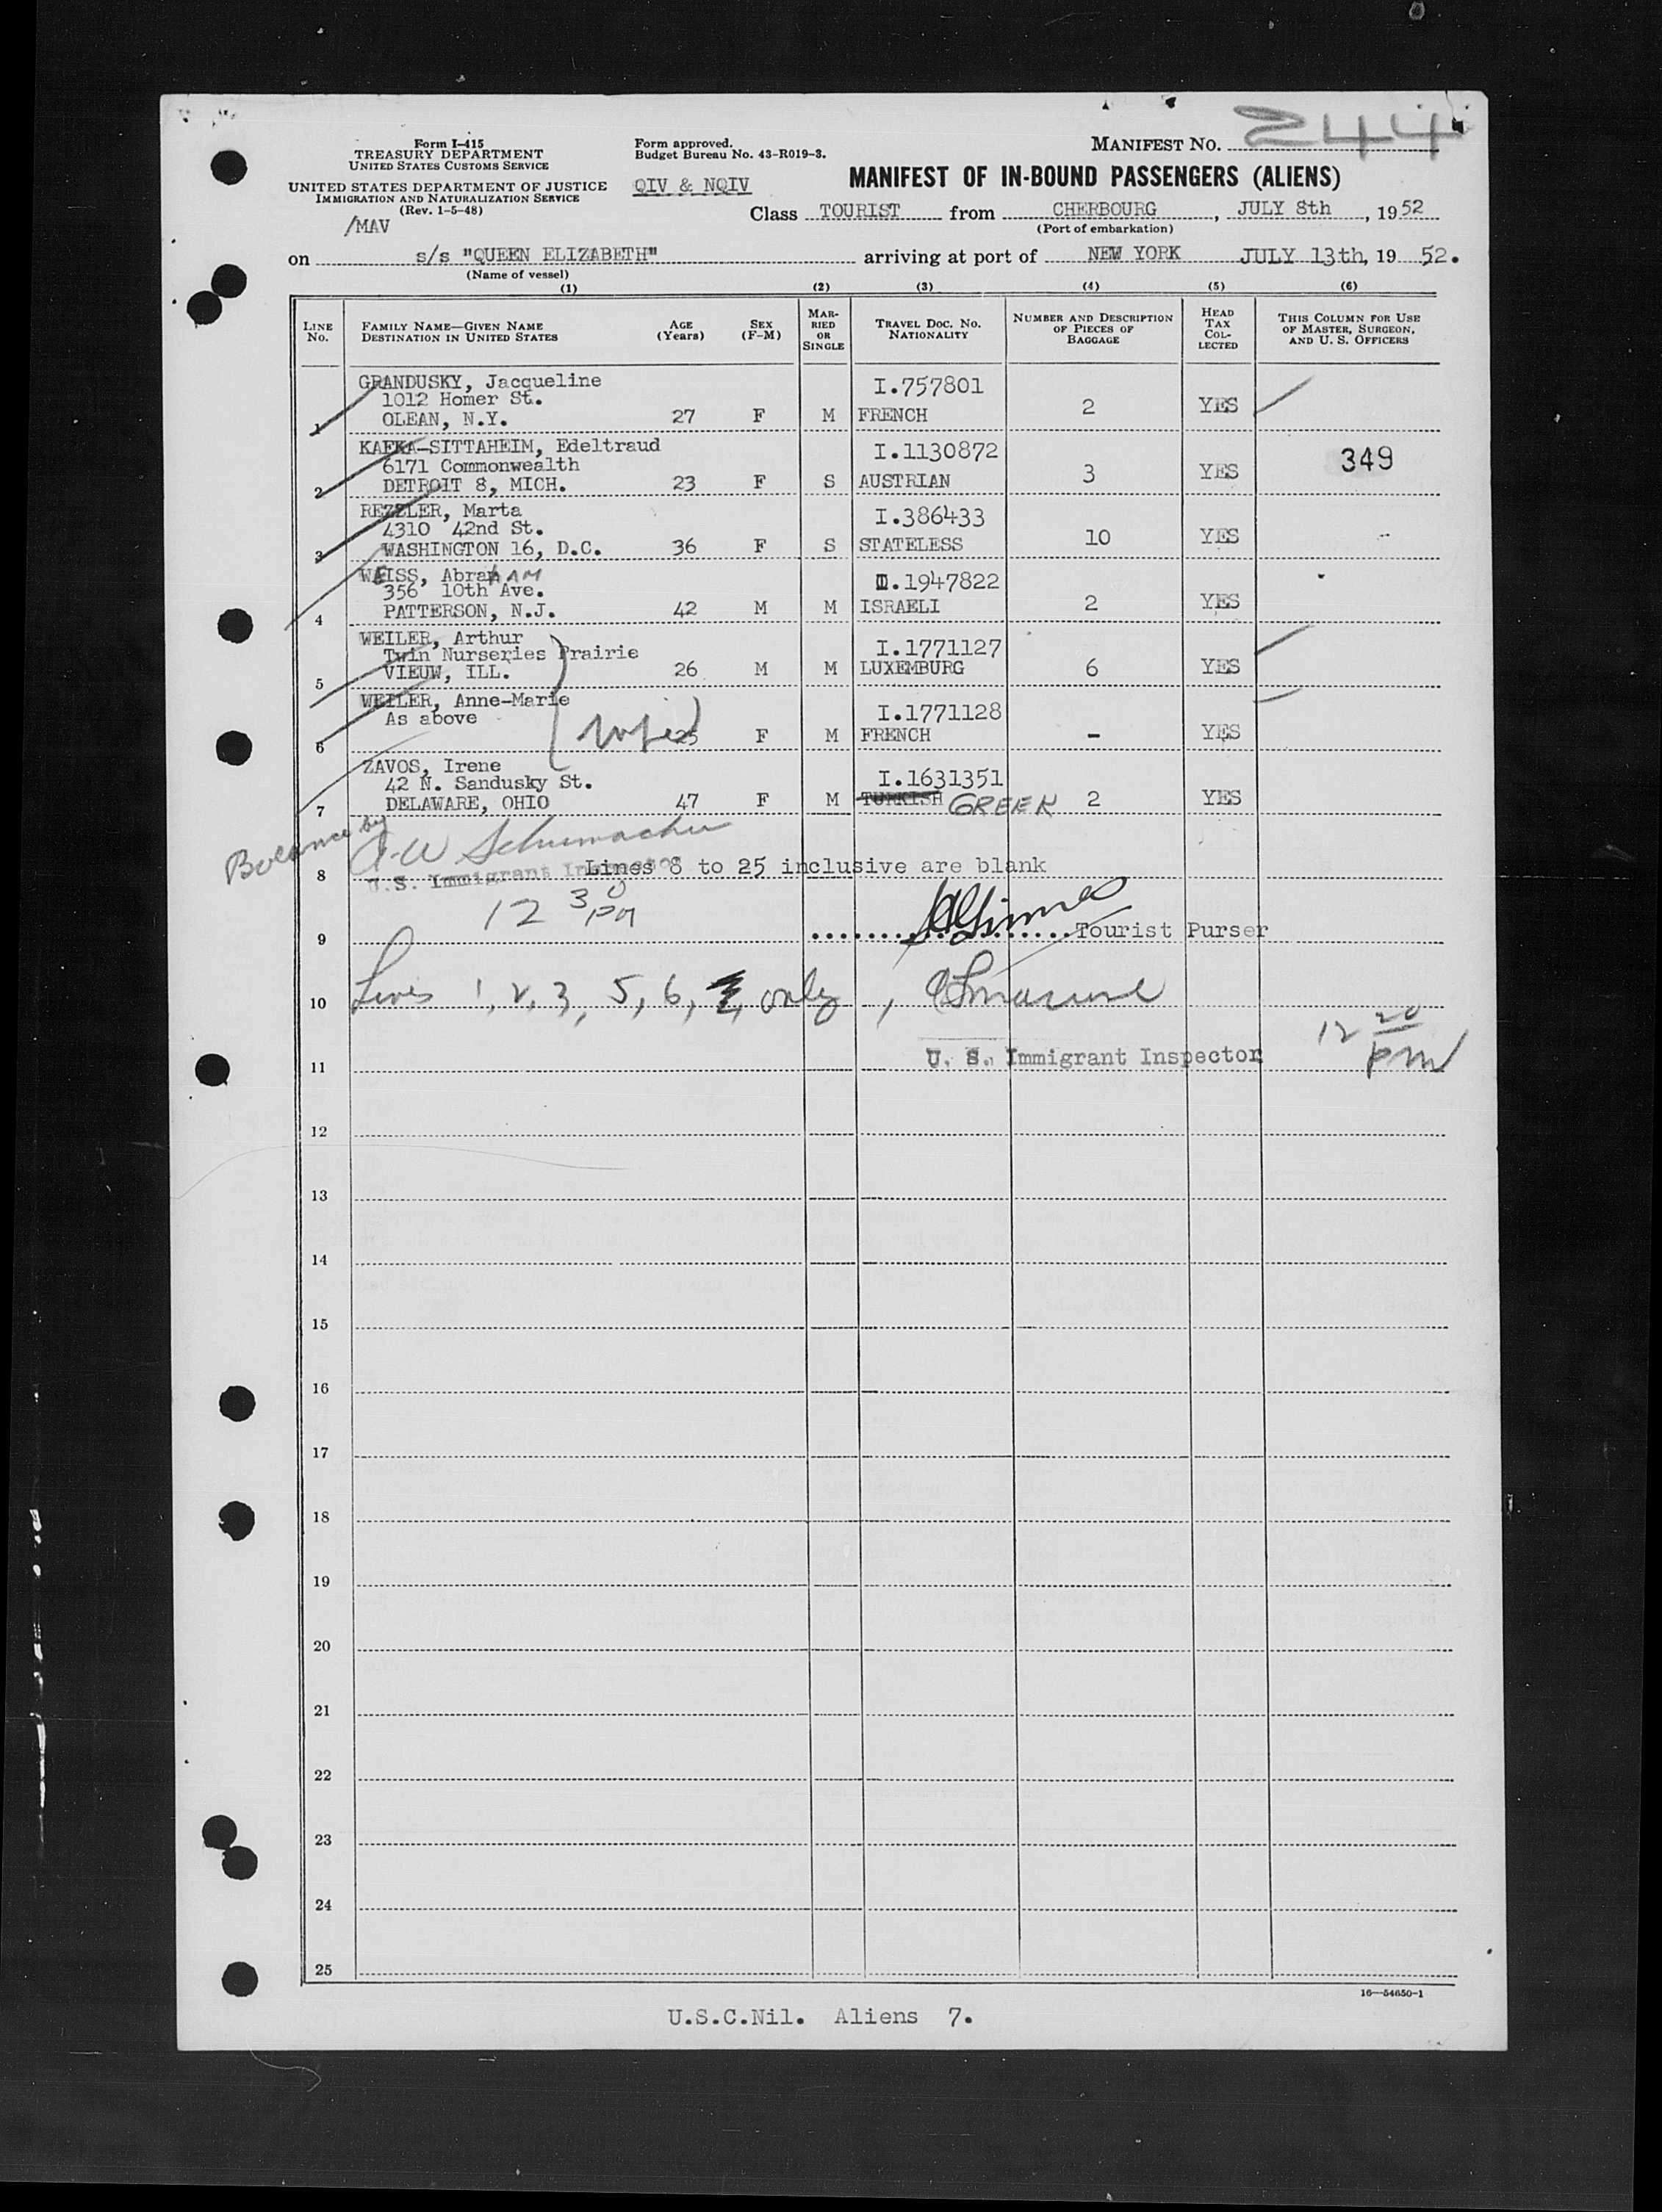 244
Form I-415
TREASURY DEPARTMENT
UNITED STATES CUSTOMS SERVICE
UNITED STATES DEPARTMENT OF JUSTICE
IMMIGRATION AND NATURALIZATION SERVICE
(Rev. 1-5-48)
/MAV
Form approved.
Budget Bureau No. 43-R019-3.
QIV & NQIV
MANIFEST NO.
MANIFEST OF IN-BOUND PASSENGERS (ALIENS)
Class TOURIST from CHERBOURG, JULY 8th, 1952
(Port of embarkation)
on s/s "QUEEN ELIZABETH" arriving at port of NEW YORK JULY 13th, 19 52.
(Name of vessel)
(1) (2) (3) (4) (5) (6)
LINE NO.
FAMILY NAME—GIVEN NAME
DESTINATION IN UNITED STATES
AGE (Years)
SEX (F-M)
MARRIED OR SINGLE
TRAVEL DOC. NO. NATIONALITY
NUMBER AND DESCRIPTION OF PIECES OF BAGGAGE
HEAD TAX COLLECTED
THIS COLUMN FOR USE OF MASTER, SURGEON, AND U. S. OFFICERS
GRANDUSKY, Jacqueline I.757801
1012 Homer St.
1 OLEAN, N.Y. 27 F M FRENCH 2 YES
KAFKA-SITTAHEIM, Edeltraud I.1130872
6171 Commonwealth 349
2 DETROIT 8, MICH. 23 F S AUSTRIAN 3 YES
REZZLER, Marta I.386433
4310 42nd St.
3 WASHINGTON 16, D.C. 36 F S STATELESS 10 YES
WEISS, AbraHAM I.1947822
356 10th Ave.
4 PATTERSON, N.J. 42 M M ISRAELI 2 YES
WEILER, Arthur I.1771127
Twin Nurseries Prairie
5 VIEUW, ILL. 26 M M LUXEMBURG 6 YES
WEILER, Anne-Marie I.1771128
As above
6 wife 25 F M FRENCH - YES
ZAVOS, Irene I.1631351
42 N. Sandusky St.
7 DELAWARE, OHIO 47 F M TURKISH GREEK 2 YES
Balance by
A-W Schumacher
U.S. Immigrant Inspector
8 Lines 8 to 25 inclusive are blank
12 30 pm
9 Tourist Purser
10 Lines 1, 2, 3, 5, 6, 7, only,
12 20 pm
11 U. S. Immigrant Inspector
12
13
14
15
16
17
18
19
20
21
22
23
24
25
16—54650-1
U.S.C.Nil. Aliens 7.